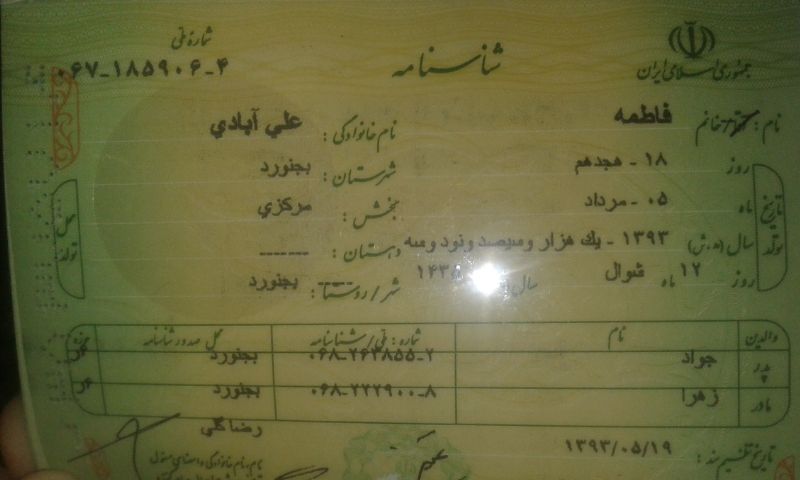 جمهوری اسلامی ایران
شناسنامه
شماره ملی
۰۶۷-۱۸۵۹۰۶-۴
نام: خانم فاطمه
نام خانوادگی: علي آبادي
تاریخ تولد
روز ۱۸ - هجدهم
ماه ۰۵ - مرداد
سال (ه.ش) ۱۳۹۳ - يك هزار و سيصد و نود و سه
روز ۱۲ ماه شوال سال
محل تولد
شهرستان: بجنورد
بخش: مركزي
دهستان: -------
شهر/روستا: بجنورد
والدین نام شماره: ملی/شناسنامه محل صدور شناسنامه
پدر جواد ۰۶۸-۲۶۳۸۵۵-۲ بجنورد
مادر زهرا ۰۶۸-۲۲۲۹۰۰-۸ بجنورد
تاریخ تنظیم سند: ۱۳۹۳/۰۵/۱۹
رضا گلي
نام، نام خانوادگی و امضای مسئول